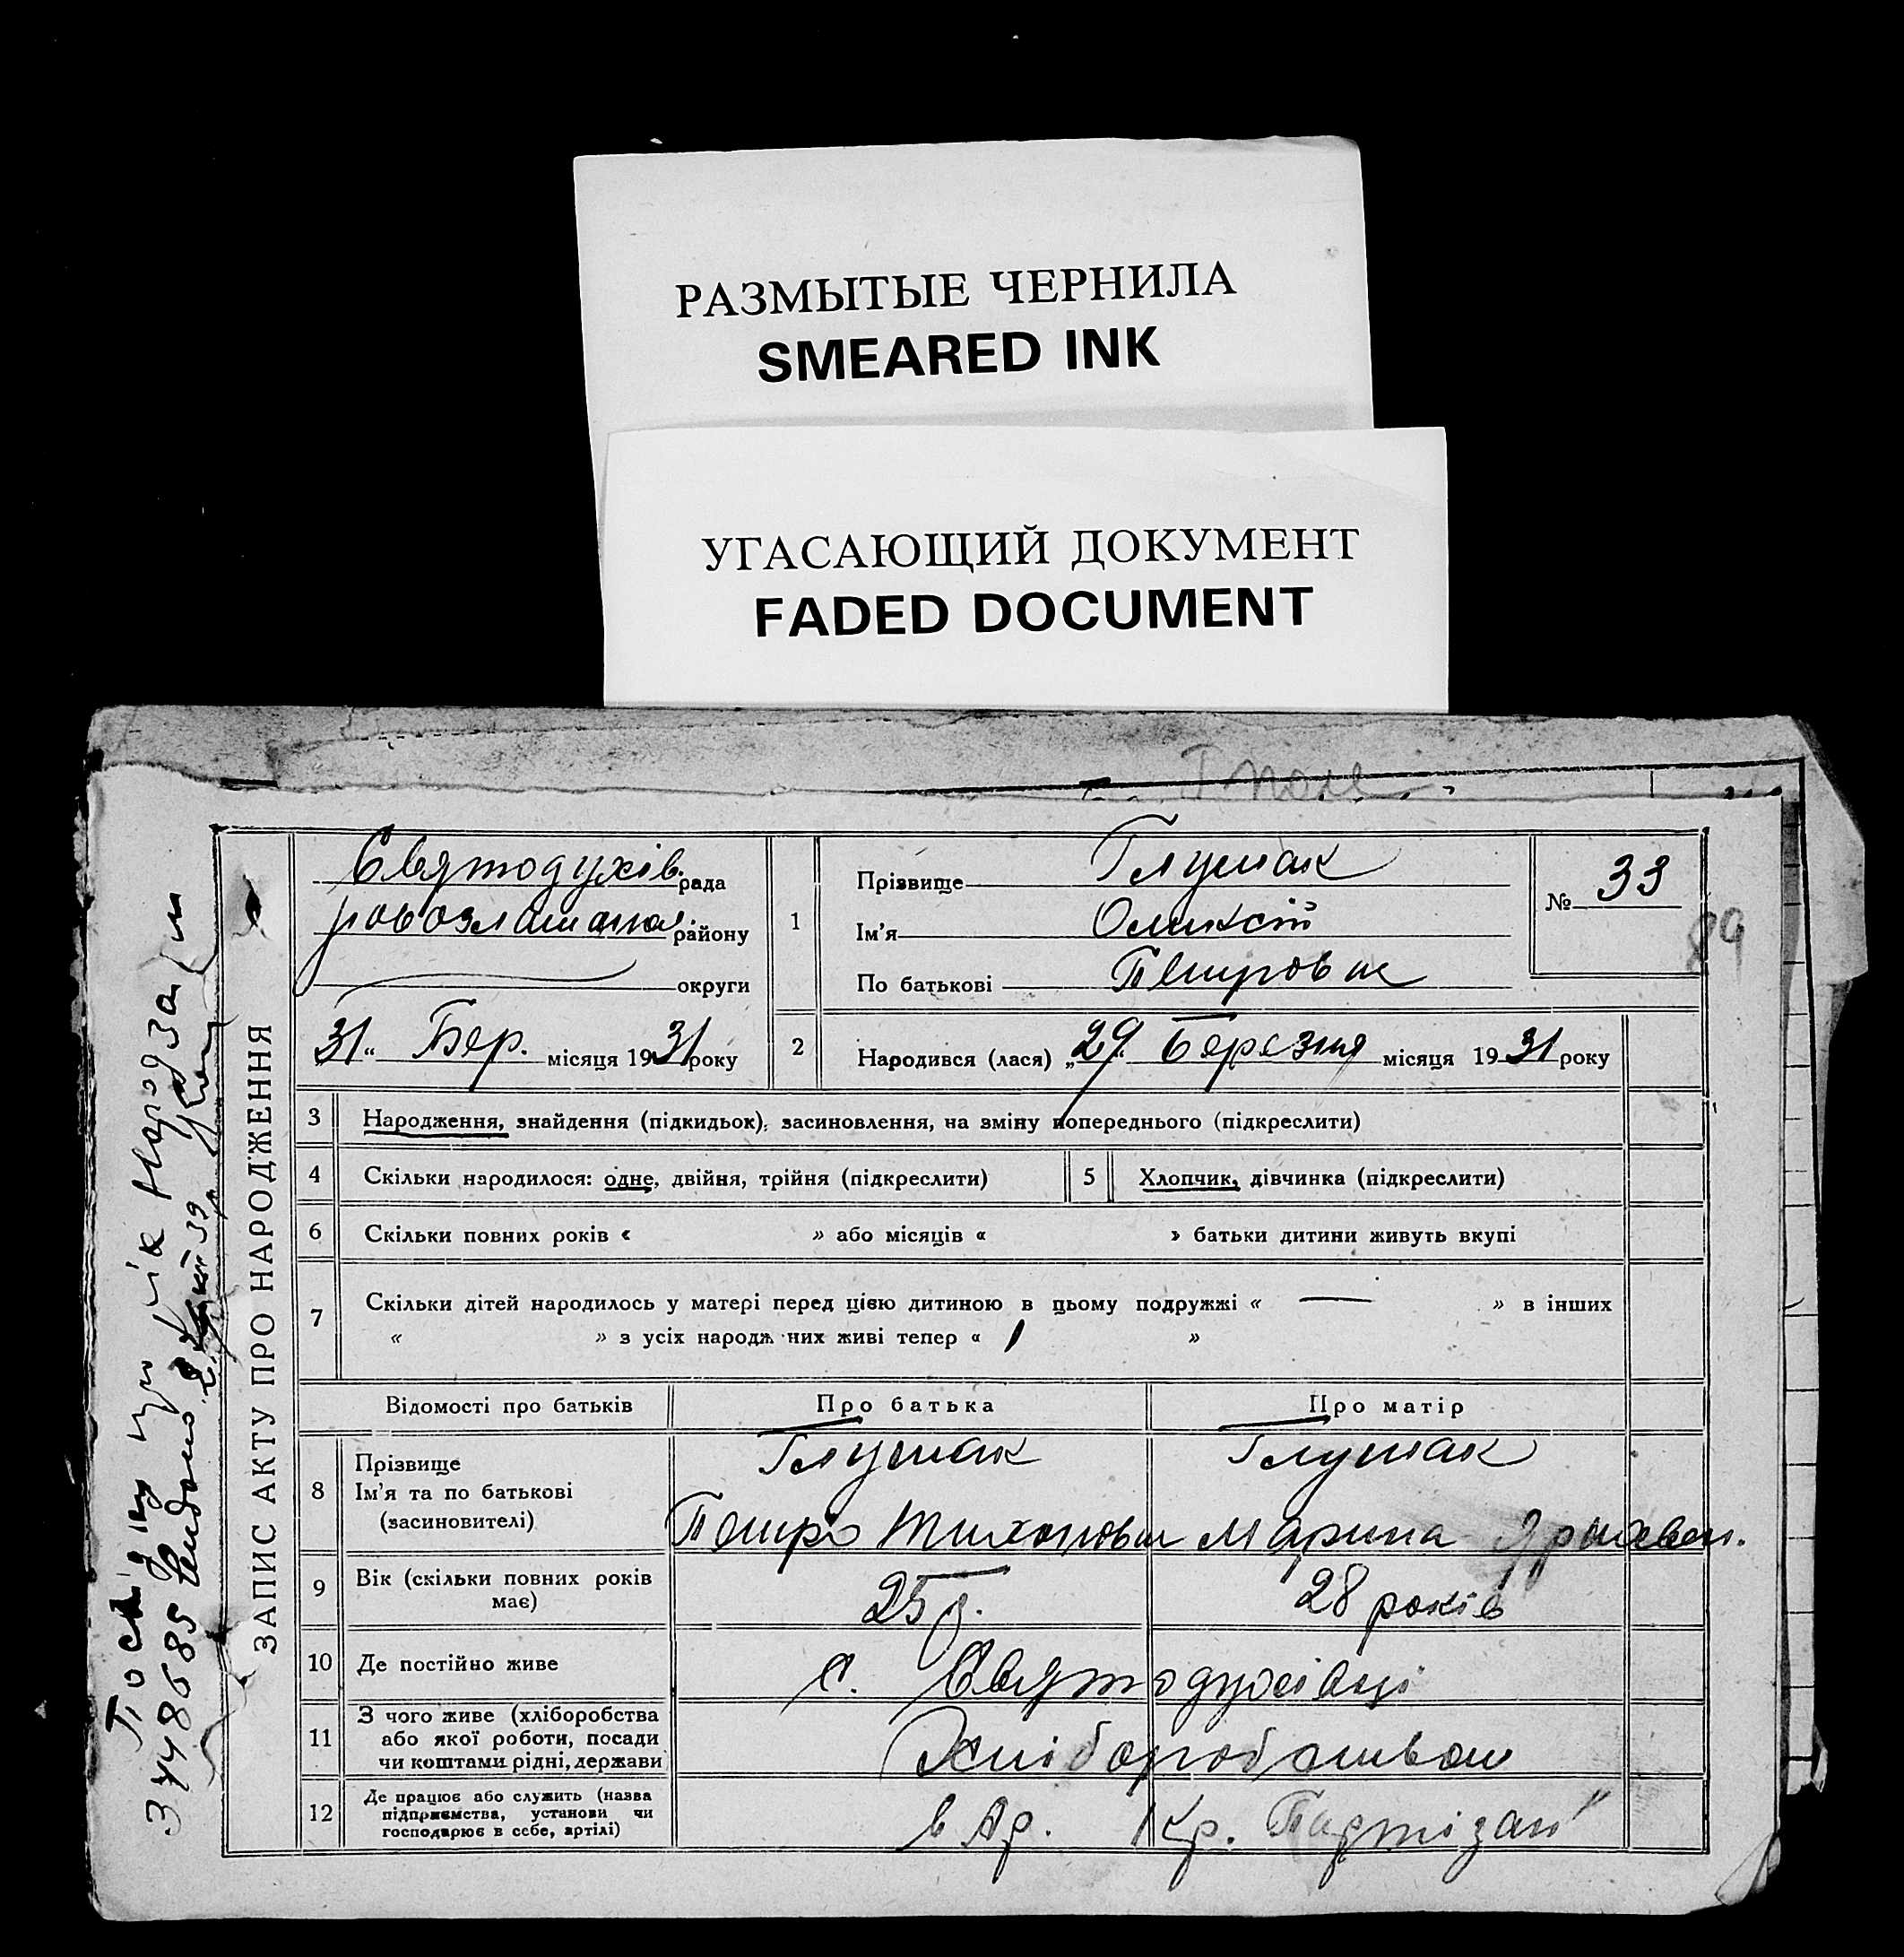 РАЗМЫТЫЕ ЧЕРНИЛА
SMEARED INK
УГАСАЮЩИЙ ДОКУМЕНТ
FADED DOCUMENT
ЗАПИС АКТУ ПРО НАРОДЖЕННЯ
Святодухів. рада
району
округи
„31“ Бер. місяця 1931 року
1
Прізвище Глушак
Ім’я Олексій
По батькові Петрович
№ 33
89
2
Народився (лася) „29“ Березня місяця 1931 року
3 Народження, знайдення (підкидьок), засиновлення, на зміну попереднього (підкреслити)
4 Скільки народилося: одне, двійня, трійня (підкреслити) 5 Хлопчик, дівчинка (підкреслити)
6 Скільки повних років « » або місяців « » батьки дитини живуть вкупі
7 Скільки дітей народилось у матері перед цією дитиною в цьому подружжі « — » в інших
« » з усіх народж них живі тепер « 1 »
Відомості про батьків Про батька Про матір
8 Прізвище Глушак Глушак
Ім’я та по батькові
(засиновителі) Петро Тихонович Марина
9 Вік (скільки повних років має) 25 р. 28 років
10 Де постійно живе с. Святодухівці
11 З чого живе (хліборобства
або якої роботи, посади
чи коштами рідні, держави Хліборобством
12 Де працює або служить (назва
підприємства, установи чи
господарює в себе, артілі) в Ар. Кр. Партізан"